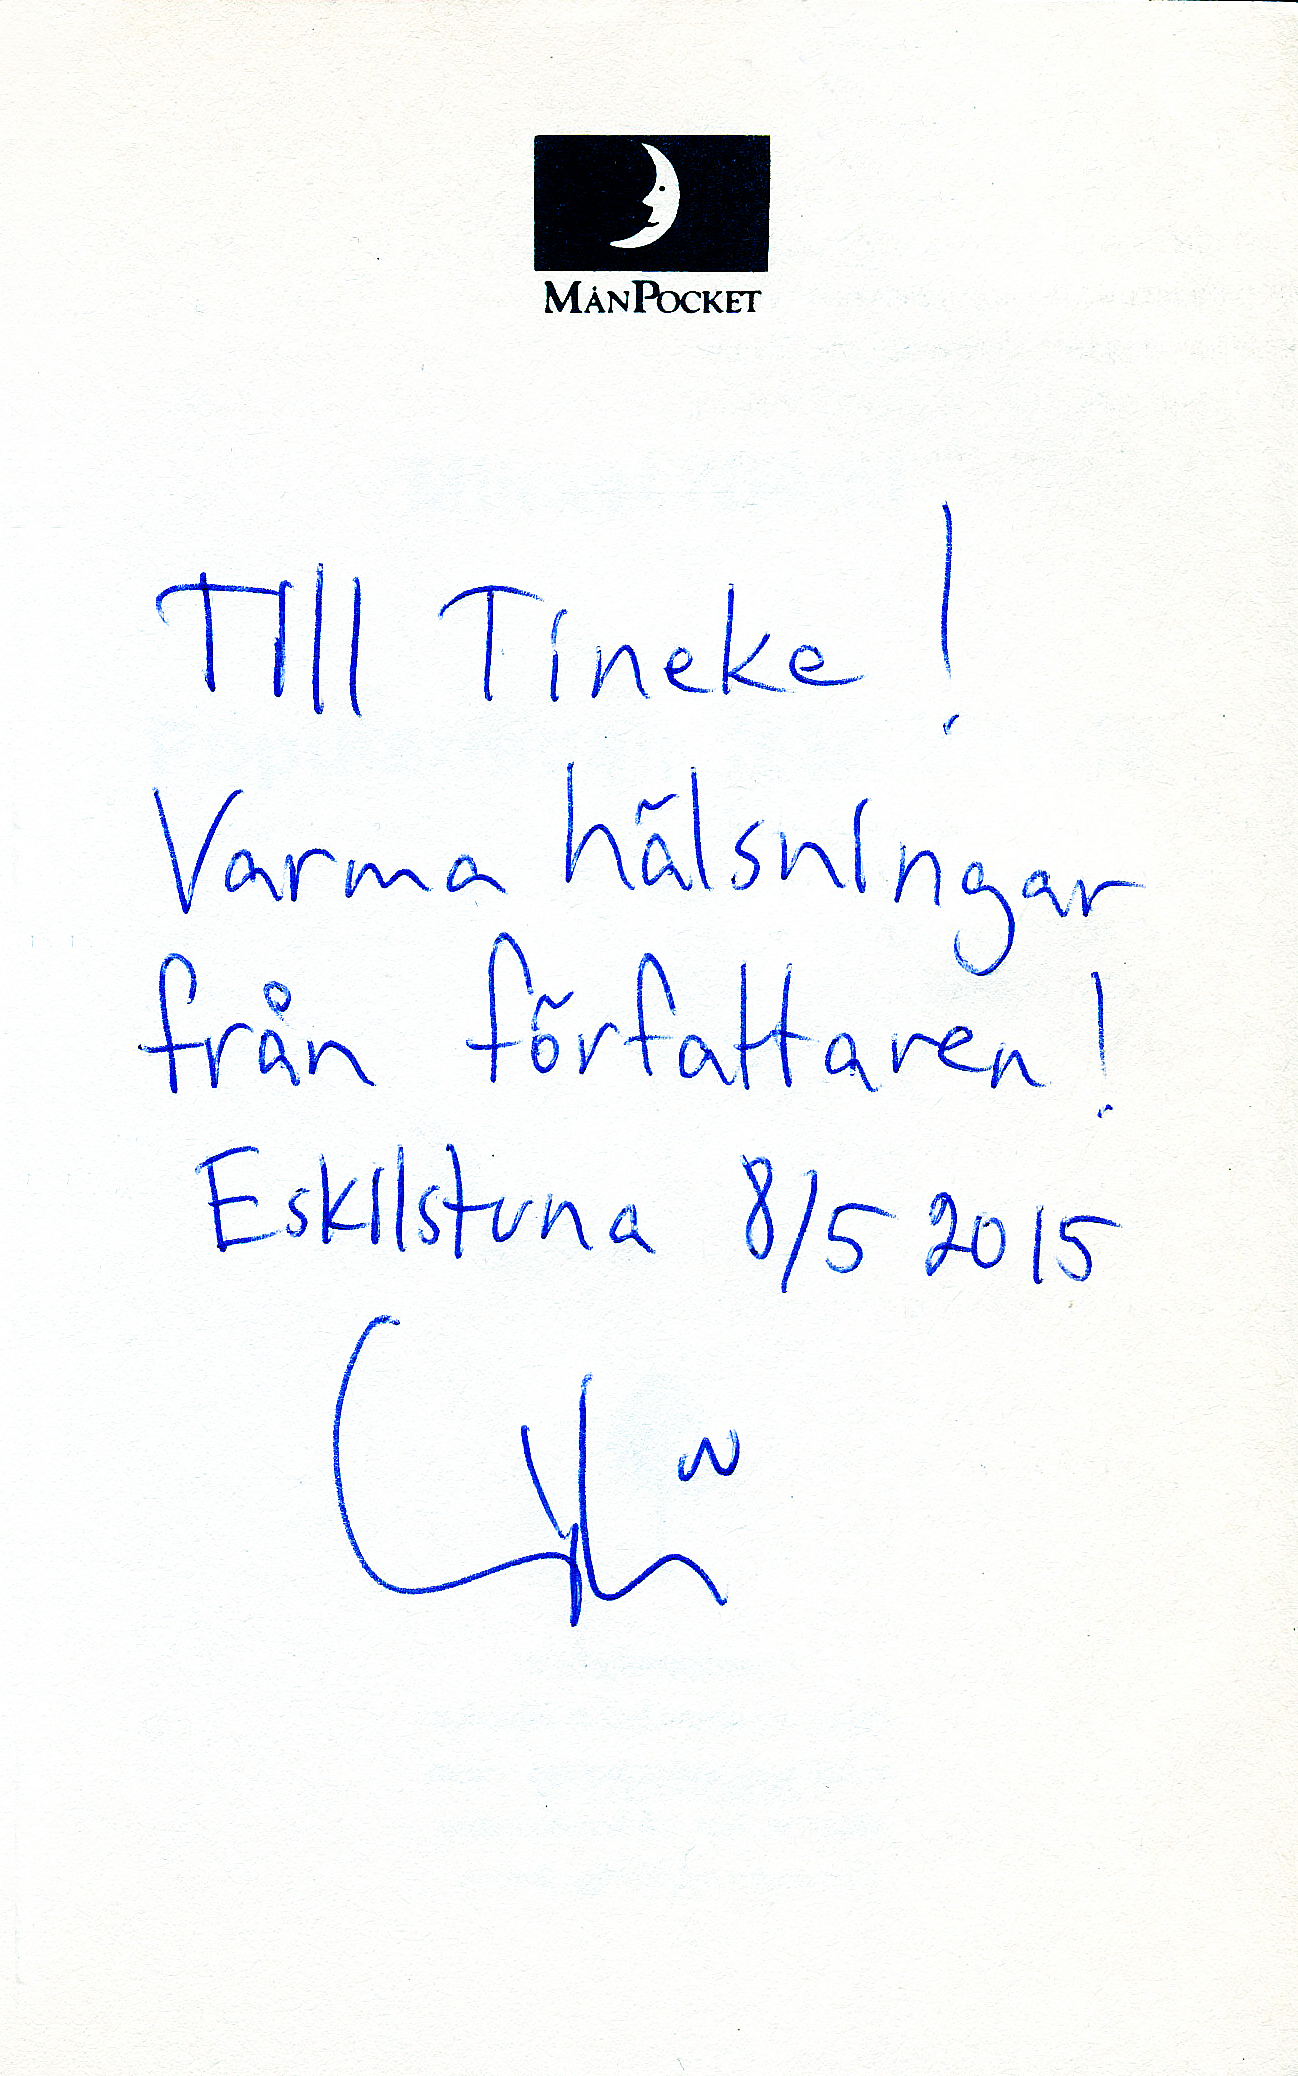 MånPocket
Till Tineke!
Varma hälsningar
från författaren!
Eskilstuna 8/5 2015